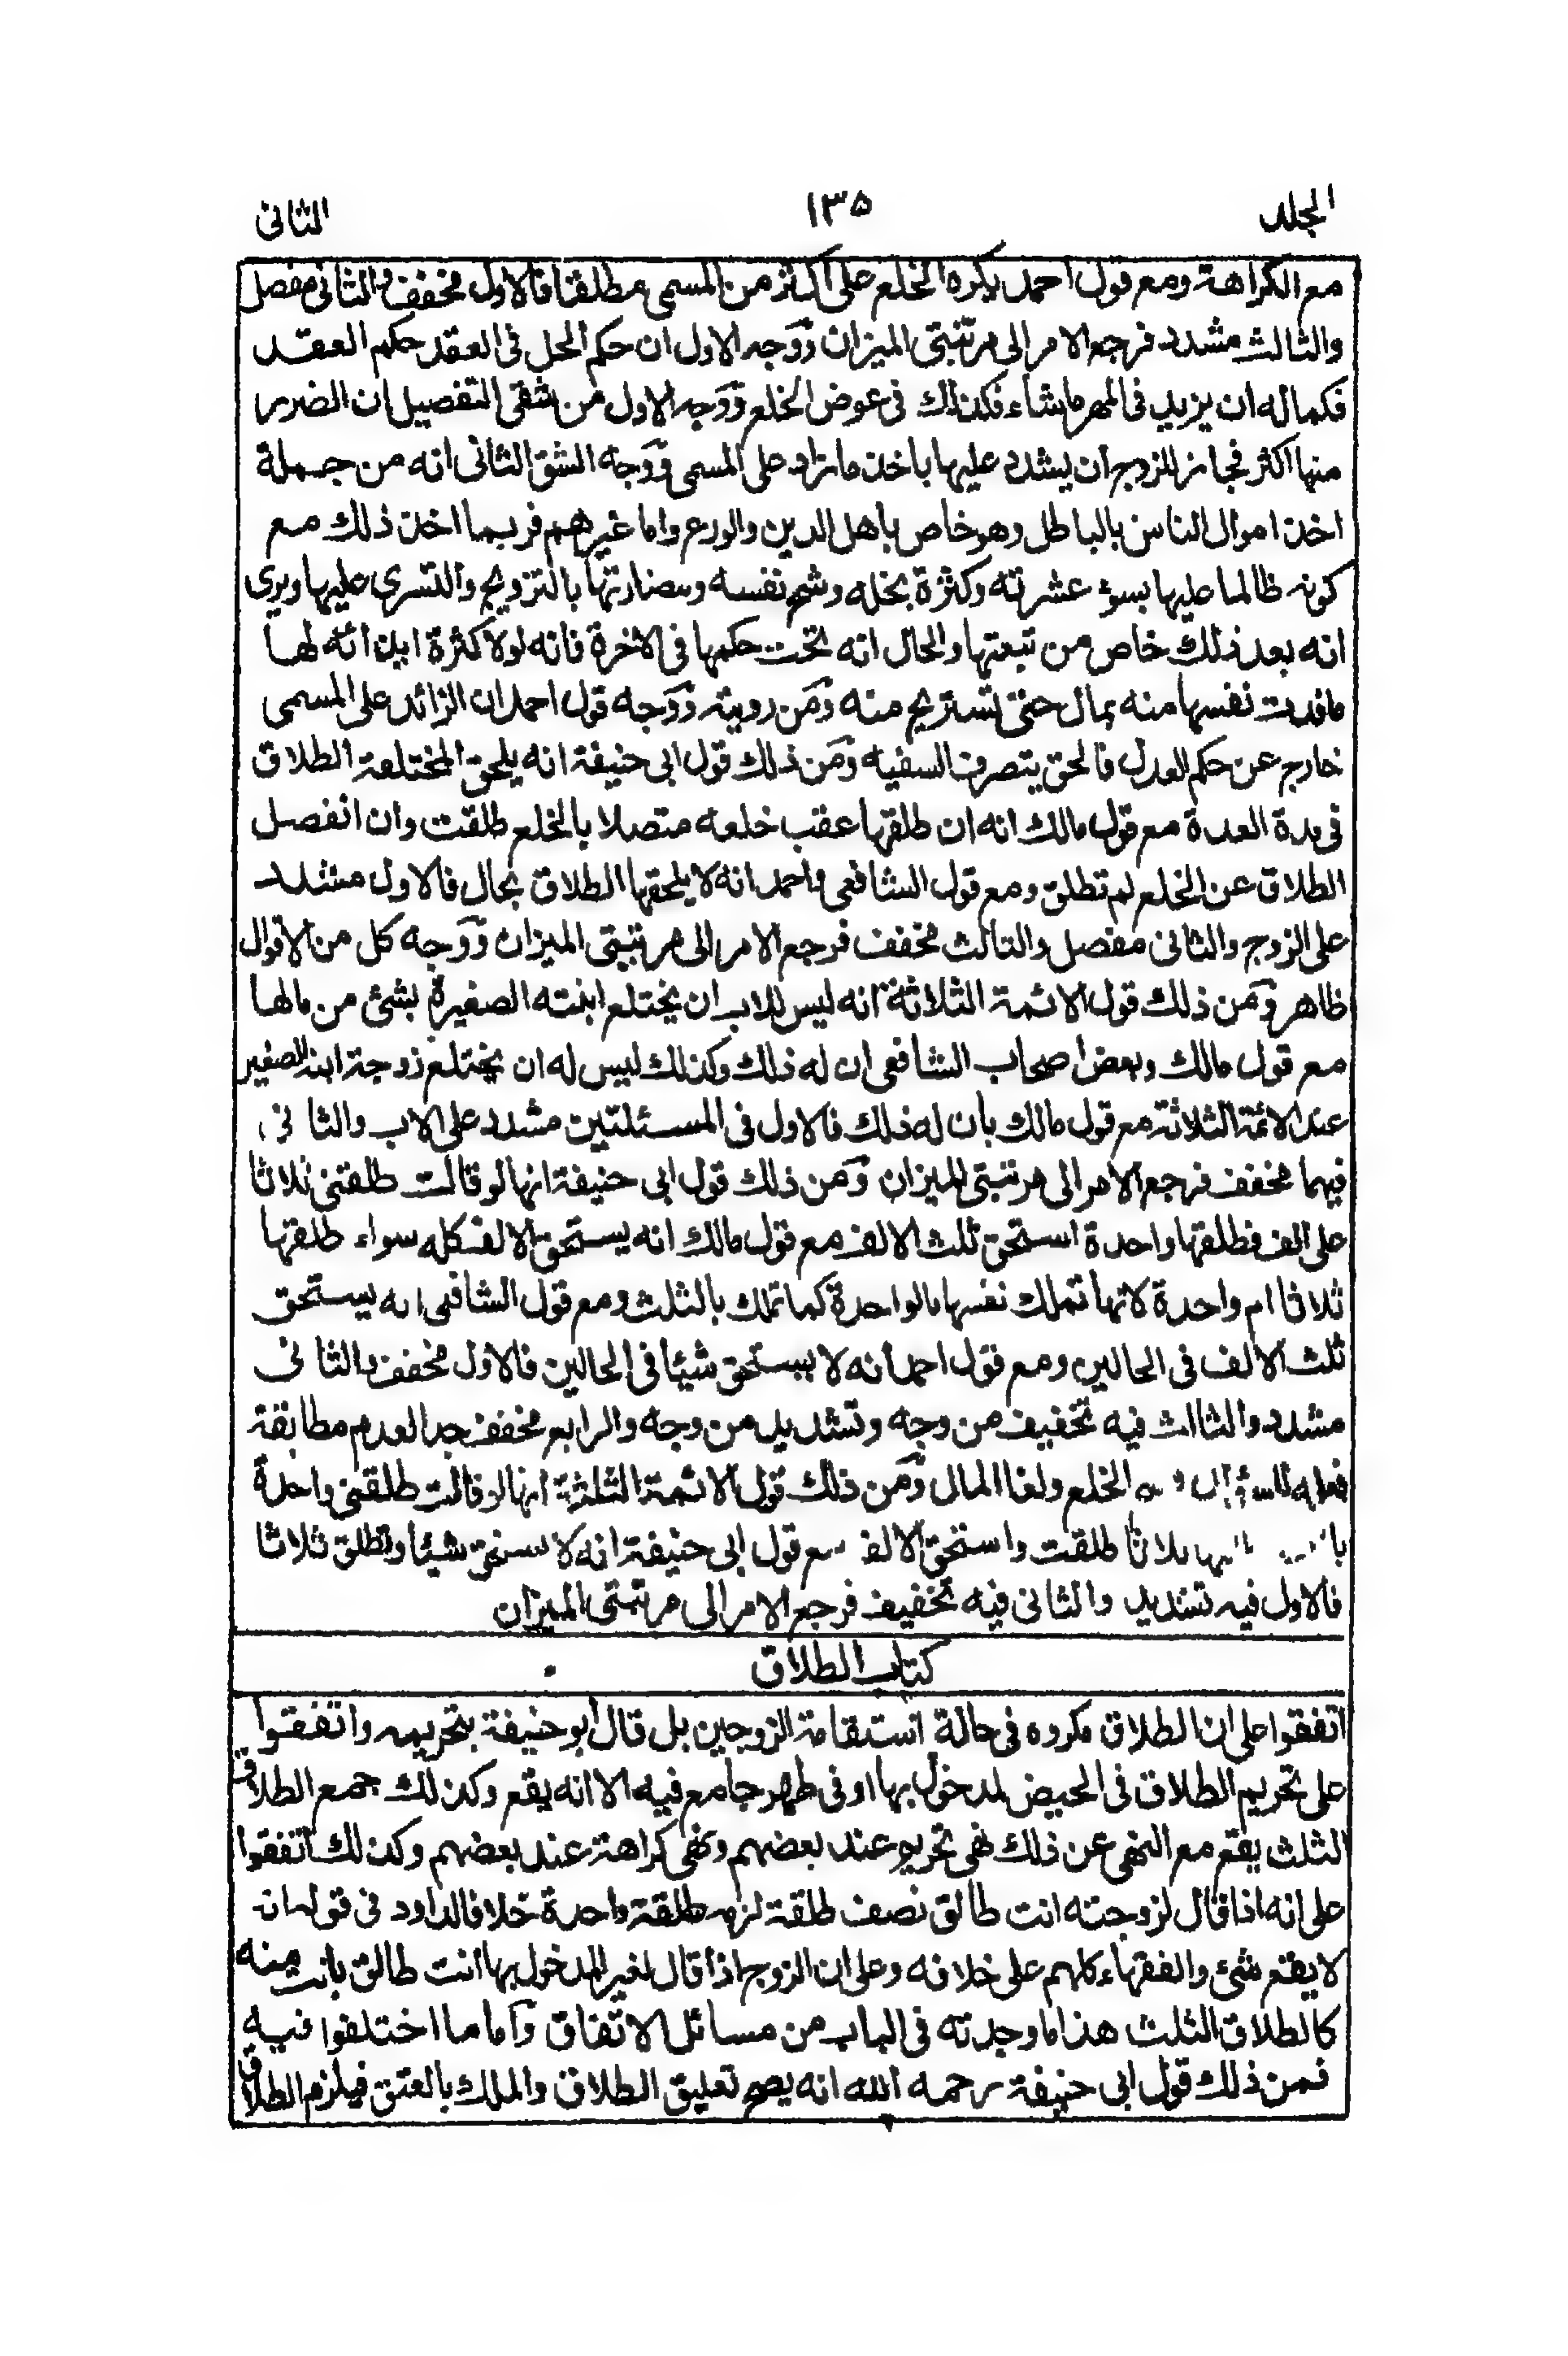 الجلد ١٣٥ الثانى
مع الكراهة ومع قول احمد يكره الخلع على اكثر من المسمى مطلقا فالاول مخفف والثانى مفصل
والثالث مشدد فرجع الامر الى مرتبتى الميزان ووجه الاول ان حكم الحل فى العقد حكم العقد
فكما له ان يزيد فى المهر ماشاء فكذلك فى عوض الخلع ووجه الاول من شقى التفصيل ان الضرر
منها اكثر فجاز للزوج ان يشدد عليها باخذ مازاد على المسمى ووجه الشق الثانى انه من جملة
اخذ اموال الناس بالباطل وهو خاص باهل الدين والورع واما غيرهم فربما اخذ ذلك مع
كونه ظالما عليها بسؤ عشرته وكثرة بخله وشح نفسه ومضارتها بالتزويج والتسرى عليها ويرى
انه بعد ذلك خاص من تبعتها والحال انه تحت حكمها فى الاخرة فانه لولا كثرة ايذائه لها
مافدت نفسها منه بمال حتى تستريح منه ومن رويته ووجه قول احمد ان الزائد على المسمى
خارج عن حكم العدل فالحق بتصرف السفيه ومن ذلك قول ابى حنيفة انه يلحق المختلعة الطلاق
فى مدة العدة مع قول مالك انه ان طلقها عقب خلعه متصلا بالخلع طلقت وان انفصل
الطلاق عن الخلع لم تطلق ومع قول الشافعى واحمد انه لا يلحقها الطلاق بحال فالاول مشدد
على الزوج والثانى مفصل والثالث مخفف فرجع الامر الى مرتبتى الميزان ووجه كل من الاقوال
ظاهر ومن ذلك قول الائمة الثلاثة انه ليس للاب ان يختلع ابنته الصغيرة بشئ من مالها
مع قول مالك وبعض اصحاب الشافعى ان له ذلك وكذلك ليس له ان يختلع زوجة ابنه الصغير
عند الائمة الثلاثة مع قول مالك بان له ذلك فالاول فى المسئلتين مشدد على الاب والثانى
فيهما مخفف فرجع الامر الى مرتبتى الميزان ومن ذلك قول ابى حنيفة انها لو قالت طلقنى ثلاثا
على الف فطلقها واحدة استحق ثلث الالف مع قول مالك انه يستحق الالف كله سواء طلقها
ثلاثا ام واحدة لانها تملك نفسها بالواحدة كما تملك بالثلث ومع قول الشافعى انه يستحق
ثلث الالف فى الحالين ومع قول احمد انه لا يستحق شيئا فى الحالين فالاول مخفف والثانى
مشدد والثالث فيه تخفيف من وجه وتشديد من وجه والرابع مخفف جدا لعدم مطابقة
فعله الخلع ولغا المال ومن ذلك قول الائمة الثلثة انها لو قالت طلقنى واحدة
ثلاثا طلقت واستحق الالف مع قول ابى حنيفة انه لا يستحق شيئا وتطلق ثلاثا
فالاول فيه تشديد والثانى فيه تخفيف فرجع الامر الى مرتبتى الميزان
كتاب الطلاق
اتفقوا على ان الطلاق مكروه فى حالة استقامة الزوجين بل قال ابو حنيفة بتحريمه واتفقوا
على تحريم الطلاق فى الحيض لمدخول بها او فى طهر جامع فيه الا انه يقع وكذلك جمع الطلاق
الثلث يقع مع النهى عن ذلك نهى تحريم عند بعضهم ونهى كراهة عند بعضهم وكذلك اتفقوا
على انه اذا قال لزوجته انت طالق نصف طلقة لزمه طلقة واحدة خلافا لداود فى قوله انه
لا يقع شئ والفقهاء كلهم على خلافه وعلى ان الزوج اذا قال لغير المدخول بها انت طالق بانت منه
كالطلاق الثلث هذا ما وجدته فى الباب من مسائل الاتفاق واما ما اختلفوا فيه
فمن ذلك قول ابى حنيفة رحمه الله انه يصح تعليق الطلاق والملك بالعتق فيلزم الطلاق